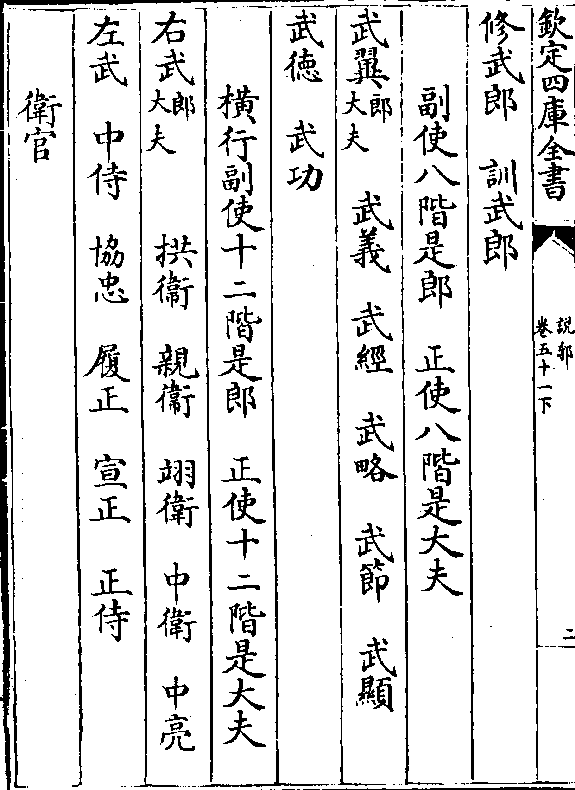 欽定四庫全書
説郛
卷五十一下
二
修武郎 訓武郎
副使八階是郎 正使八階是大夫
武翼郎大夫 武義 武經 武略 武節 武顯
武德 武功
橫行副使十二階是郎 正使十二階是大夫
右武郎大夫 拱衛 親衛 翊衛 中衛 中亮
左武 中侍 協忠 履正 宣正 正侍
衛官